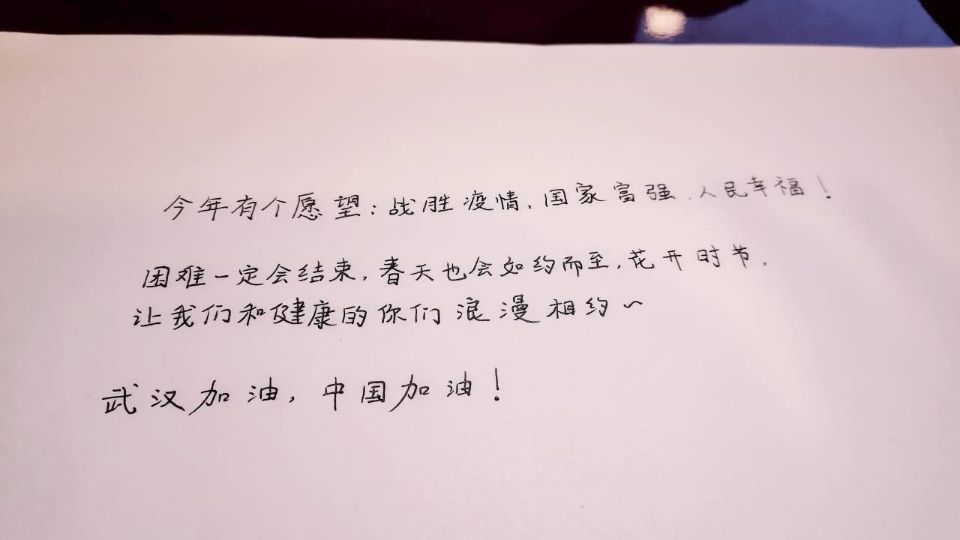 今年有个愿望：战胜疫情，国家富强，人民幸福！
困难一定会结束，春天也会如约而至，花开时节，
让我们和健康的你们浪漫相约～
武汉加油，中国加油！